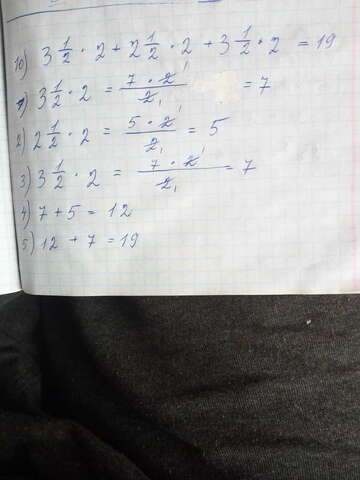 10) 3 1/2 · 2 + 2 1/2 · 2 + 3 1/2 · 2 = 19
1) 3 1/2 · 2 = 7 · 2 1 / 2 1 = 7
2) 2 1/2 · 2 = 5 · 2 1 / 2 1 = 5
3) 3 1/2 · 2 = 7 · 2 1 / 2 1 = 7
4) 7 + 5 = 12
5) 12 + 7 = 19